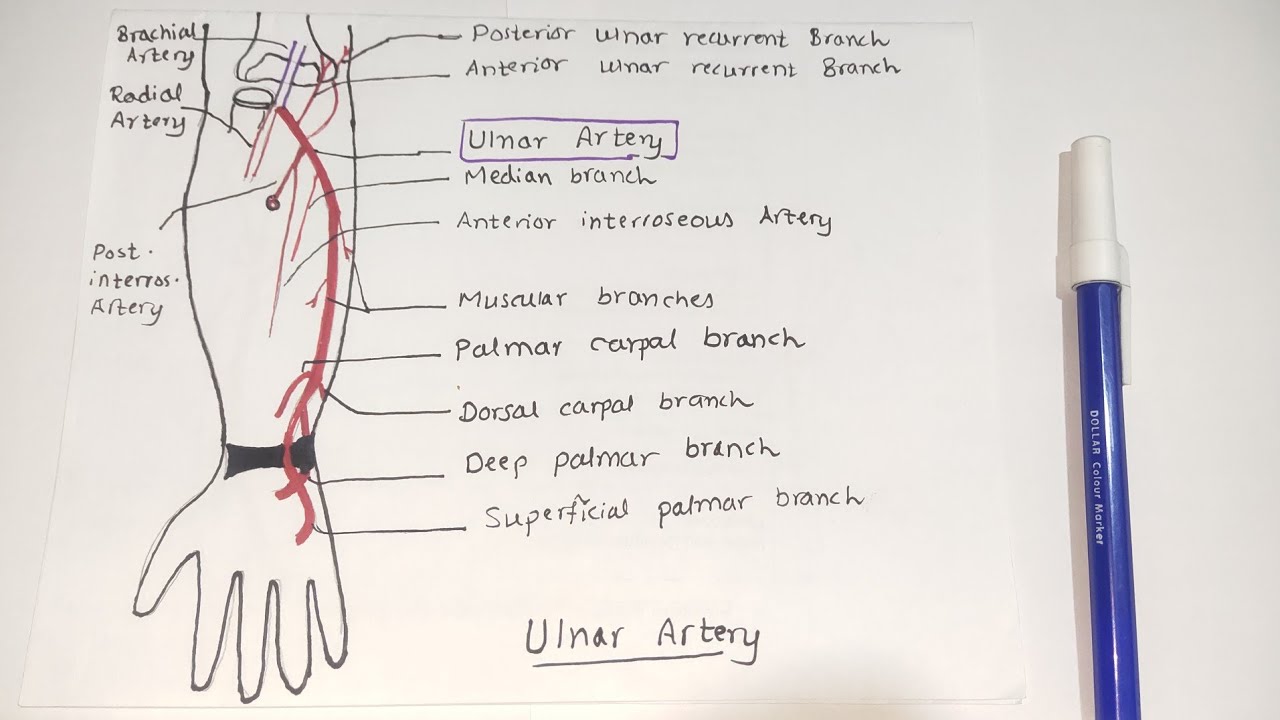 Brachial
Artery
Radial
Artery
Post.
interros.
Artery
Posterior ulnar recurrent Branch
Anterior ulnar recurrent Branch
Ulnar Artery
Median branch
Anterior interroseous Artery
Muscular branches
Palmar carpal branch
Dorsal carpal branch
Deep palmar branch
Superficial palmar branch
Ulnar Artery
DOLLAR Colour Marker